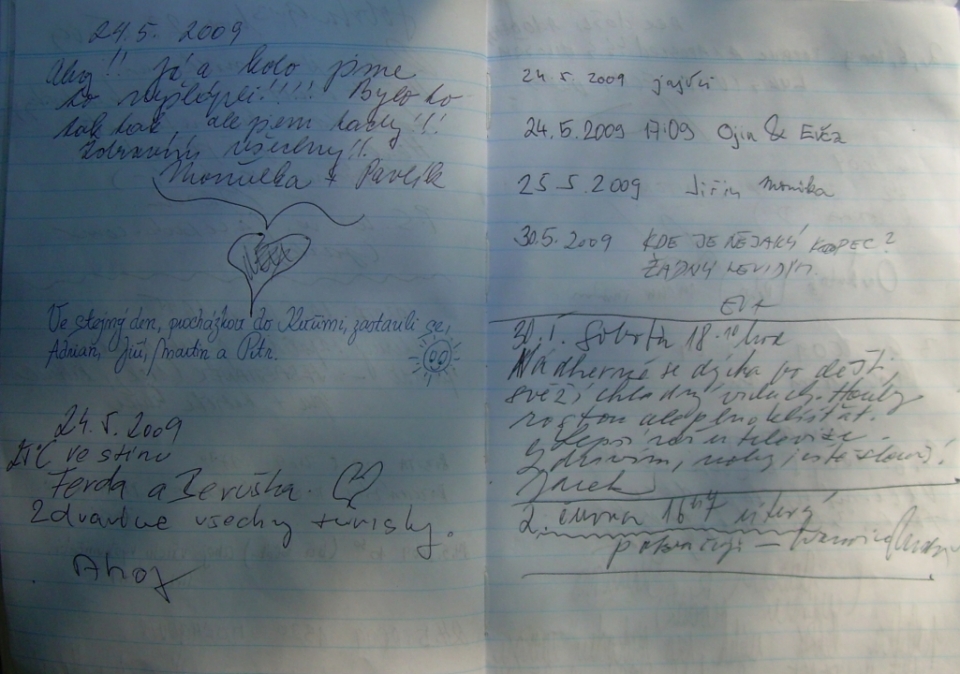 24.5. 2009
Ahoj!! Já a kolo jsme
to nejlepší!!!! Bylo to
tak tak, ale jsem tady!!!
Zdravím všechny!!
Monička + Pavlík
Ve stejný den, procházkou do Kuřimi, zastavili se,
Adrian, Jiří, Martin a Petr.
24.5.2009
ve stínu
Ferda a Beruška.
Zdravíme všechny turisty.
Ahoj
24.5.2009
24.5.2009 17:09 Ojin & Evža
25.5.2009 Jiří Monika
30.5.2009 KDE JE NĚJAKÝ KOPEC?
ŽÁDNÝ NEVIDÍM.
EVA
Sobota 18.10 hod
Nádherně se dýchá po dešti,
svěží chladný vzduch. Houby
rostou ale plno klíšťat.
lepší než u televize.
Zdravím,
Jarek
2. června 16 47 úterý